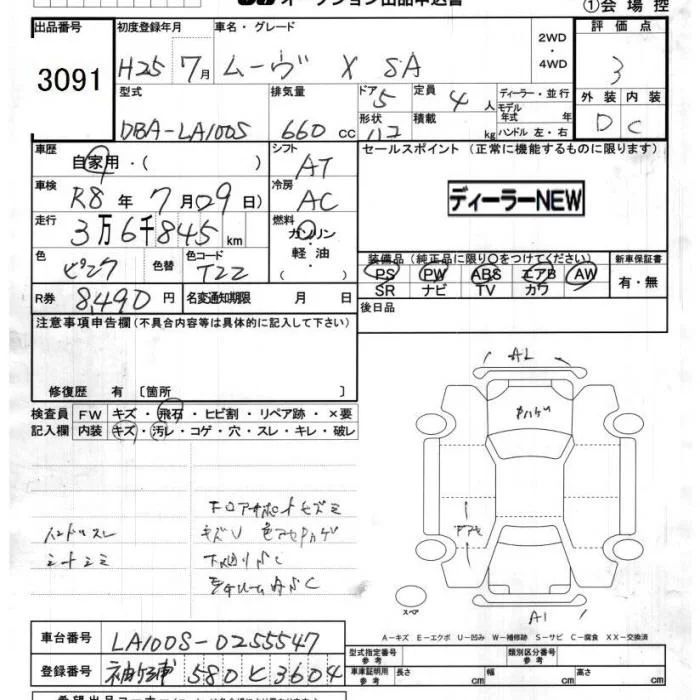 オークション出品申込書
①会場控
出品番号 初度登録年月 車名・グレード 2WD・4WD 評価点
3091 H25 7月 ムーヴ X SA 3
型式 排気量 ドア 5 定員 4人 ディーラー・並行
モデル年式 年
外装 内装
DBA-LA100S 660cc 形状 積載 kg ハンドル 左・右 D C
車歴 自家用・( ) シフト AT セールスポイント (正常に機能するものに限ります)
車検 R8年 7月 09日 冷房 AC ディーラーNEW
走行 3万6千845km 燃料 ガソリン・軽油・( )
色 ピンク 色替 色コード T22
装備品 (純正品に限り○をつけてください) 新車保証書
PS PW ABS エアB AW 有・無
SR ナビ TV カワ
R券 8,490円 名変通知期限 月 日 後日品
注意事項申告欄 (不具合内容等は具体的に記入して下さい)
修復歴 有 〔箇所 〕
検査員 FW キズ・飛石・ヒビ割・リペア跡・×要
記入欄 内装 キズ・汚レ・コゲ・穴・スレ・キレ・破レ
ハンドルスレ
シートシミ
キズU
A1
スペア
A1
A-キズ E-エクボ U-凹み W-補修跡 S-サビ C-腐食 XX-交換済
車台番号 LA100S-0255547
型式指定番号 参考 類別区分番号 参考
登録番号 袖ヶ浦 580 ヒ 3604
車庫証明用 参考 長さ cm 幅 cm 高さ cm